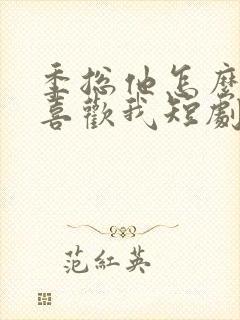 季總他怎麼
喜歡我短劇
范紅英